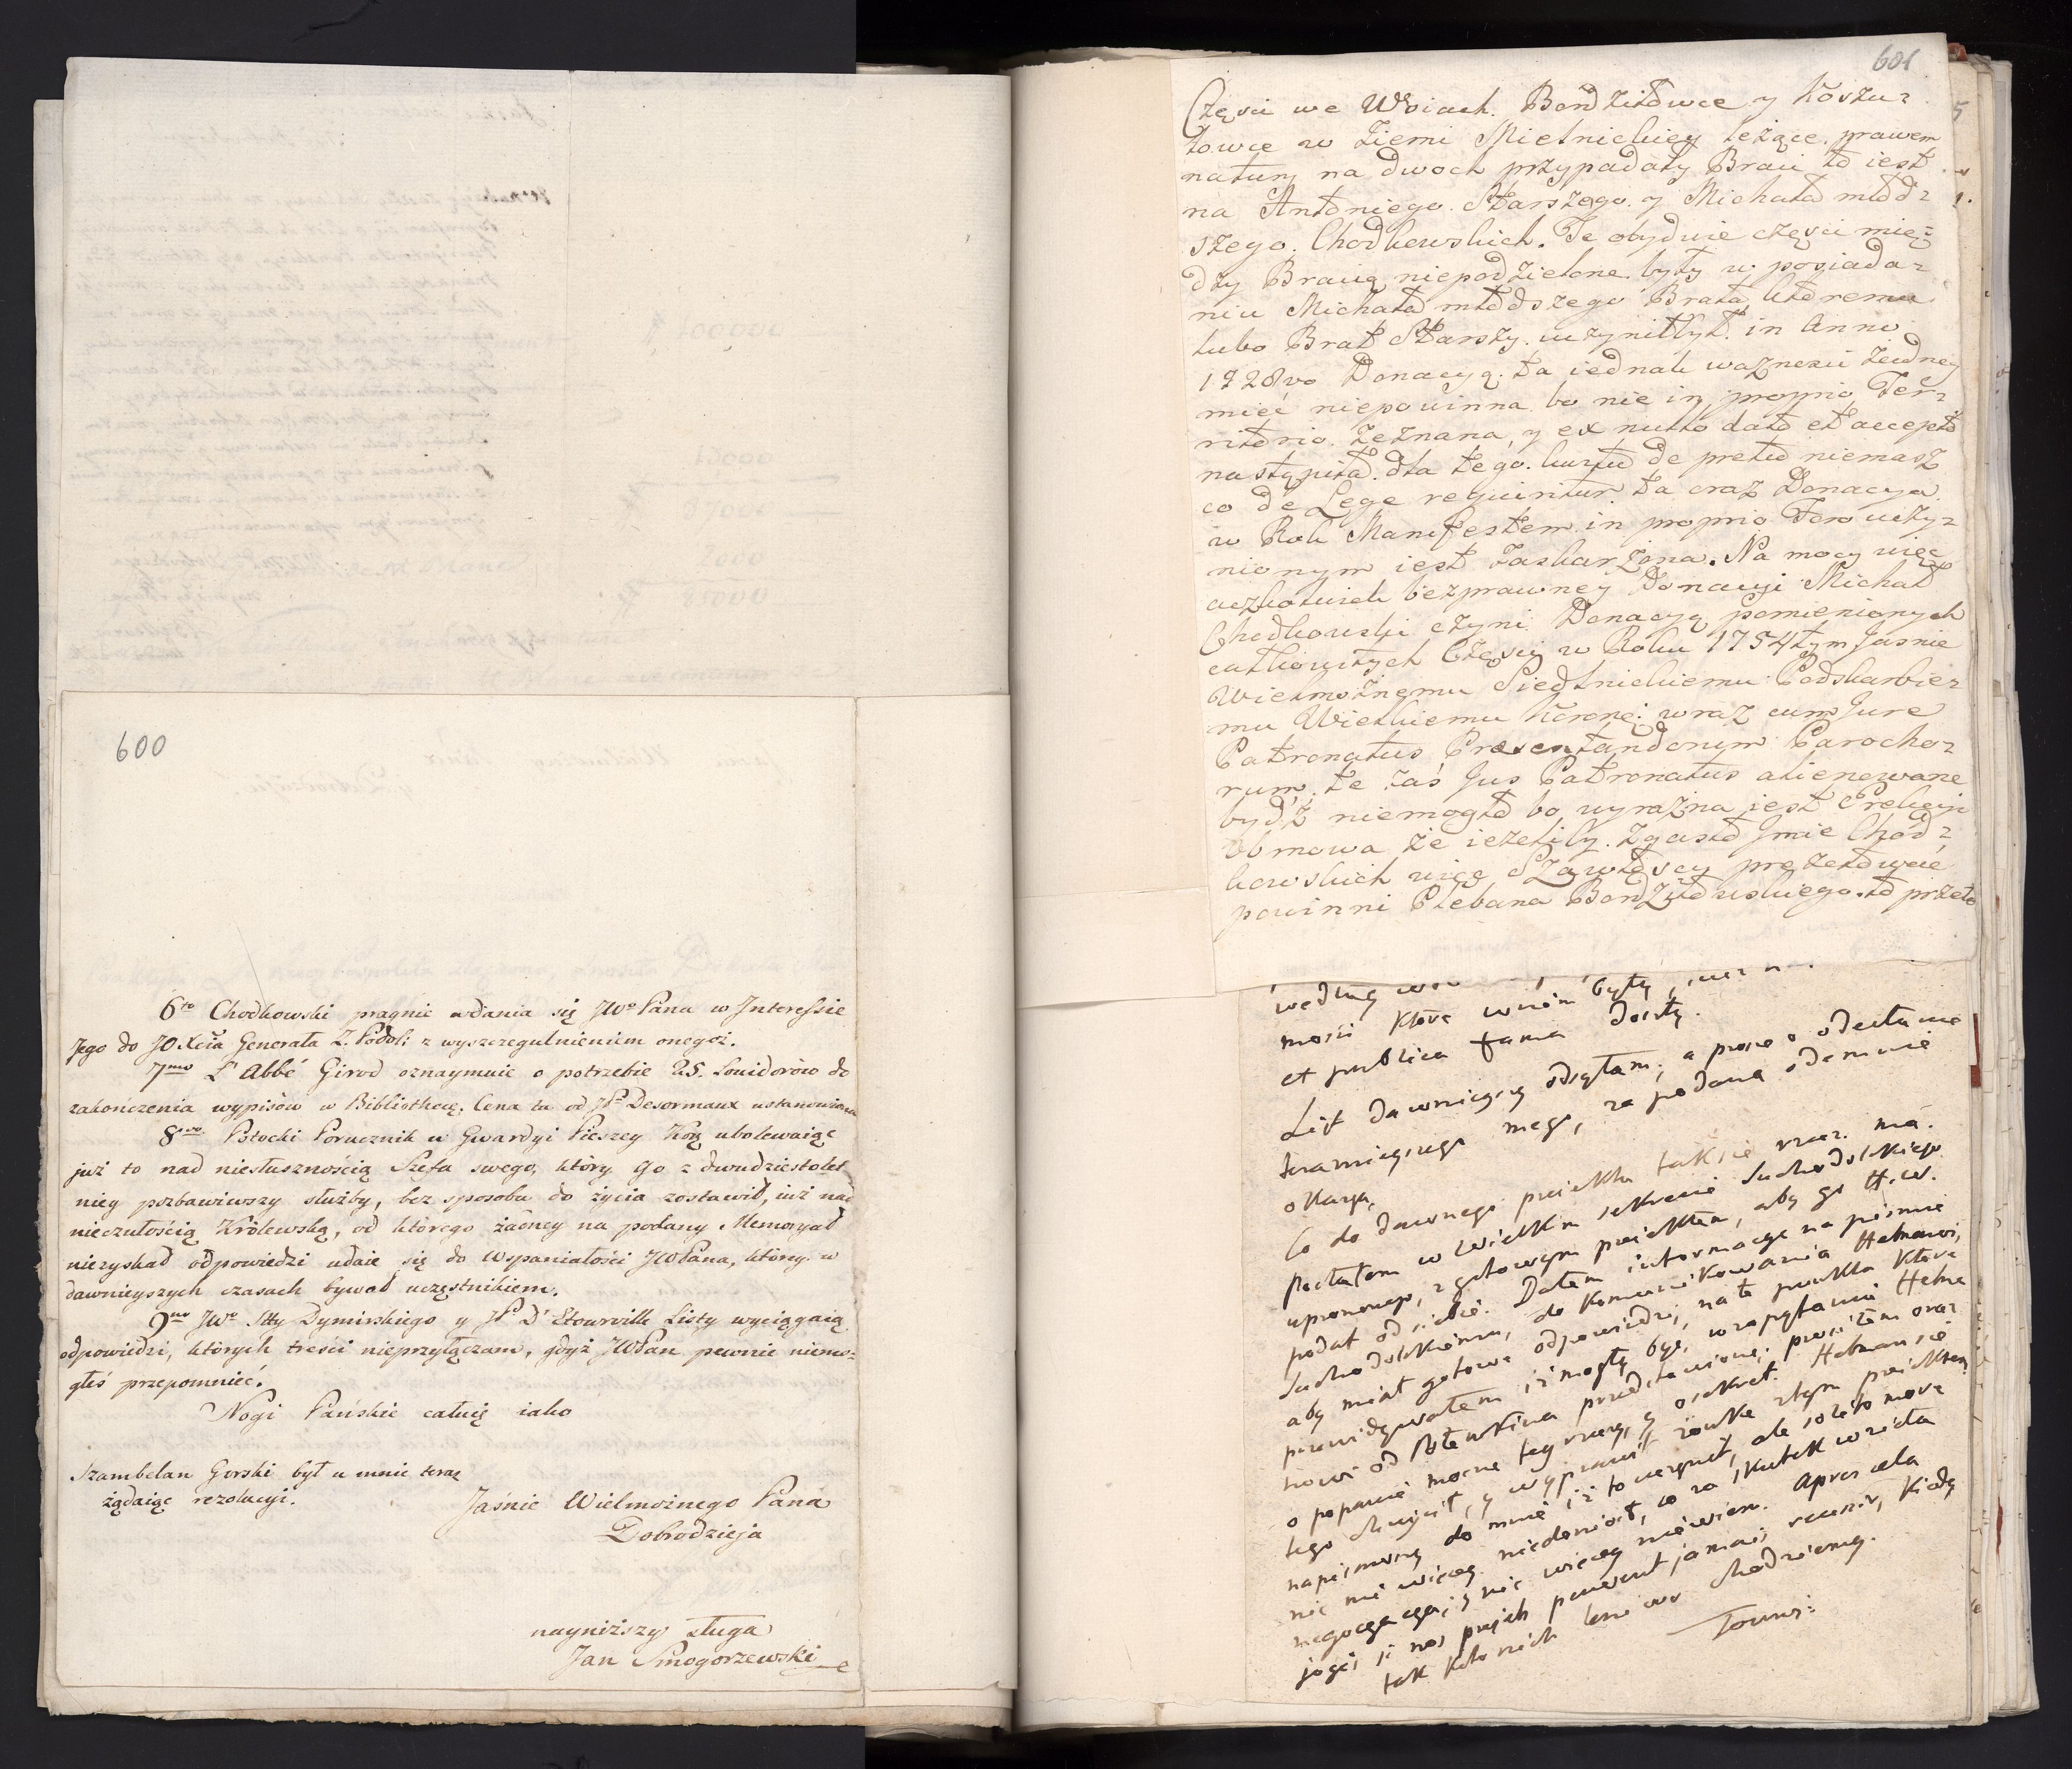 600
6to Chodkowski pragnie udania się JWo Pana w Interessie
Jego do JO Xcia Generała Z. Podol: z wyszczegulnieniem onegoż.
7mo L'Abbé Girod oznaymuie o potrzebie 25. Louidorów do
zakończenia wypisów w Bibliothece. Cena ta od JP Desormaux ustanowiona
8vo Potocki Porucznik w Gwardyi Pieszey Kor ubolewaiąc
już to nad niesłusznością Szefa swego, który go z dwudziestolet
niey pozbawiwszy służby, bez sposobu do życia zostawił, iuż nad
nieczułością Królewską, od którego żadney na podany Memoryał
niezyskał odpowiedzi udaie się do Wspaniałości JWPana, który w
dawnieyszych czasach bywał uczęstnikiem.
9no JWo Stty Dymirskiego y JP D'Etourville Listy wyciągaią
odpowiedzi, których treści nieprzyłączam, gdyż JWPan pewnie niemo=
głeś przepomnieć.
Nogi Pańskie całuię iako
Szambelan Gorski był u mnie teraz
żądaiąc rezolucyi.
Jaśnie Wielmożnego Pana
Dobrodzieja
nayniższy sługa
Jan Smogorzewski
601
Częsci we Wsiach Bordziłowce y Koszu=
łowce w Ziemi Mielnickiey leżące prawem
natury na dwoch przypadały Braci to iest
na Antoniego Starszego y Michała młod=
szego Chodkowskich. Te obydwie częsci mię=
dzy Bracią niepodzielone były w posiada=
niu Michała młodszego Brata, ktoremu
lubo Brat Starszy uczyniłbył in Anno
1728vo Donacyą ta iednak waznosci żadney
mieć niepowinna bo nie in proprio Ter=
ritorio zeznana, y ex nullo dato et accepto
nastąpiła dla tego kwitu de pretio niemasz
co de Lege requiritur ta oraz Donacya
w Rok Manifestem in proprio Foro uczy=
nionym iest zaskarżona. Na mocy więc
aczkolwiek bezprawney Donacyi Michał
Chodkowski czyni Donacyą pomienionych
całkowitych Częsci w Roku 1754tym Jasnie
Wielmożnemu Siedlnickiemu Podskarbie=
mu Wielkiemu Koron: wraz cum Jure
Patronatus Presentandorum Parocho=
rum. te zaś Jus Patronatus alienowane
bydź niemogło bo wyrazna jest Erekcyi
Obmowa że ieżeliby zgasło Jmie Chod=
kowskich więc Szawłoscy prezetowac
powinni Plebana Bordziłowskiego. to przeto
według
mosci które wniem były,
et publica fama doszły.
List dawnieyszy odsyłam, a proszę o odesłanie
teraznieyszego mego, za podaną odemnie
okazyą.
Co do dawnego projektu tak się rzecz ma.
Posłałem w wielkim sekrecie Suchodolskiego
uproszonego, z gotowym projektem, aby go H. w.
podał od siebie. Dałem informacyę na piśmie
Suchodolskiemu, do komunikowania Hetmanowi,
aby miał gotowe odpowiedzi, na te punkta które
przewidywałem iż mogły być, w zapytaniu Hetma
nowi od Potemkina przedstawione; prosiłem oraz
o poparcie mocne tey rzeczy, y o sekret. Hetman się
tego chwycił, y wyprawił z tym projektem
napisawszy do mnie iż to uczynił, ale
nic mi więcey niedoniosł, co za skutek wzieła
negocyacya; y nic więcey niewiem. Apres cela
jugés si nos projets peuvent jamais reussir, kiedy
tak koło nich leniwo chodziemy.